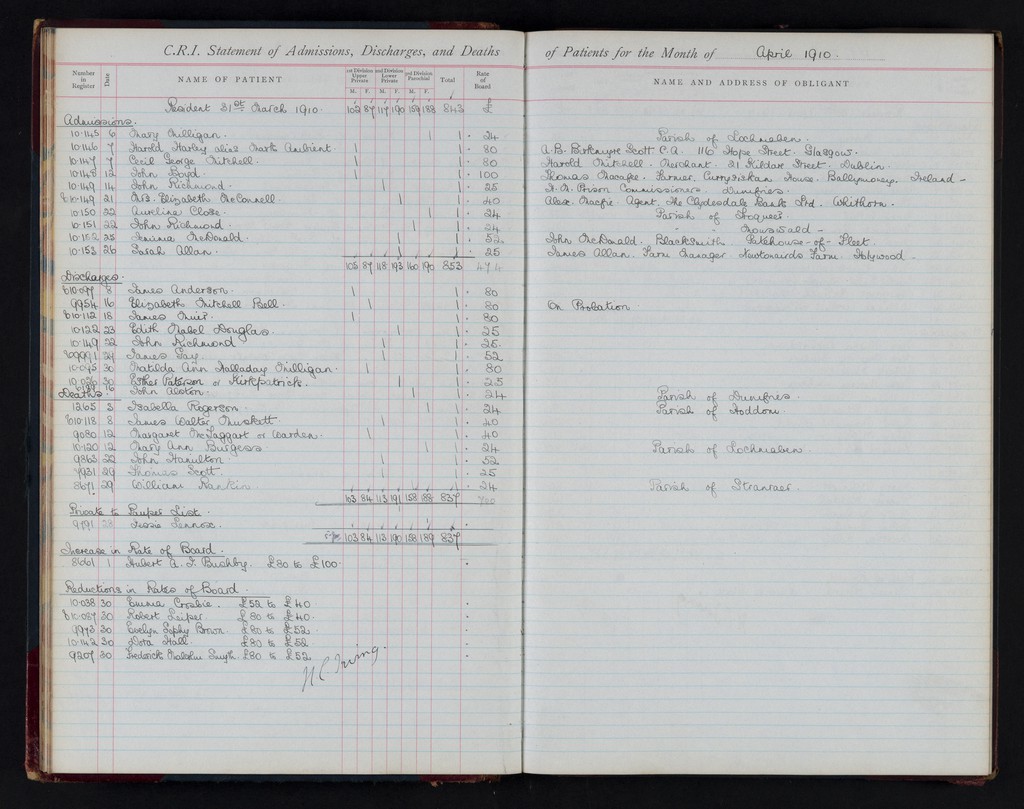 C.R.I. Statement of Admissions, Discharges, and Deaths of Patients for the Month of April 1910.
Number in Register Date NAME OF PATIENT 1st Division Upper Private 2nd Division Lower Private 3rd Division Parochial Total Rate of Board NAME AND ADDRESS OF OBLIGANT
M. F. M. F. M. F.
Resident 31st March 1910. 102 87 117 190 159 188 843 £
Admissions.
10.145 6 Mary Milligan. 1 1 . 24 Parish of Lochmaben.
10.146 7 Harold Harley alias Mark Ambient. 1 1 . 80 A.B. Birkmyre Scott C.A. 116 Hope Street. Glasgow.
10.147 7 Cecil George Mitchell. 1 1 . 80 Harold Mitchell. Merchant. 21 Kildare Street. Dublin.
10.148 12 John Boyd. 1 1 . 100 Thomas Macafee. Farmer. House. Ballymoney. Ireland -
10.149 14 John Richmond. 1 1 . 25 H.M. Prison Commissioners. Dumfries.
21 Mrs. Elizabeth McConnell. 1 1 . 40 Alex. Macfie. Agent. The Clydesdale Bank Ltd. Whithorn.
10.150 22 Aureline Close. 1 1 . 24 Parish of Troqueer.
10.151 22 John Richmond. 1 1 . 24 " " Mouswald -
10.152 25 Jemima McDonald. 1 1 . 52 John McDonald. Blacksmith. Gatehouse-of-Fleet.
10.153 26 Sarah Allan. 1 1 . 25 James Allan. Farm Manager. Newtonairds Farm. Holywood -
105 87 118 193 160 190 853 474
Discharges.
610.097 8 James Anderson. 1 1 . 80
9954 16 Elizabeth Mitchell Bell. 1 1 . 80 On Probation
610.112 18 James Muir. 1 1 . 80
10.122 23 Edith Mabel Douglas. 1 1 . 25
10.149 22 John Richmond 1 1 . 25.
24 James Fay. 1 1 . 52
10.045 30 Matilda Ann Halladay Milligan. 1 1 . 80
10.036 30 Esther Paterson or Kirkpatrick. 1 1 . 25
Deaths. 16 John Alston. 1 1 . 24 Parish of Dumfries.
1265 3 Isabella Rogerson. 1 1 . 24 Parish of Hoddom.
610.118 8 James Walter Muskett 1 1 . 40
9080 12 Margaret McTaggart or Warden. 1 1 . 40
10.120 12 Mary Ann Burgess 1 1 . 24 Parish of Lochmaben.
9863 22 John Hamilton. 1 1 . 52
7931 29 Thomas Scott. 1 1 . 25
8671. 29 William Rankin. 1 1 . 24 Parish of Stranraer.
103 84 113 191 158 188 837
Private to Pauper List.
9791 28 Jessie Lennox. 1
103 84 113 190 158 189 837
Increase in Rate of Board.
8661 1 Hubert A. J. Bushby. £80 to £100.
Reductions in Rates of Board.
10.038 30 Emma Crosbie. £52 to £40
610.087 30 Robert Leiper. £80 to £40.
9973 30 Evelyn Sophy Brown. £80 to £52.
10.142 30 Dora Hall. £80 to £52.
9207 30 Frederick Malcolm Smyth. £80 to £52.
N C Irving.